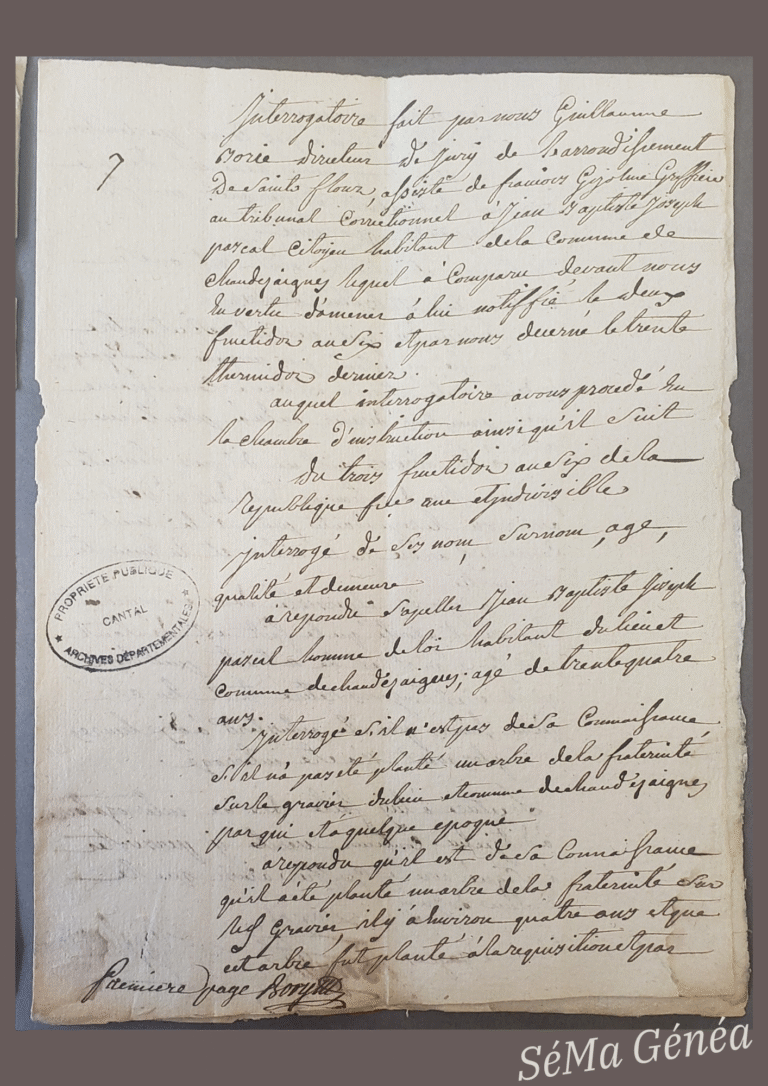 7
Interrogatoire fait par nous Guillaume
Borie directeur de Jury de larrondissement
De Saint flour, assisté de francois Greffier
au tribunal Correctionnel à Jean Baptiste Joseph
pascal Citoyen habitant de la Commune de
chaudesaignes lequel à Comparu devant nous
En vertu d'amener à lui notiffié le deux
fructidor an Six et par nous decerné le trente
thermidor dernier.
auquel interrogatoire avons procedé En
la chambre d'instruction ainsi qu'il suit
Du trois fructidor an Six de la
Republique une et indivisible
Interrogé de Ses nom, Surnom, age,
qualité et demeure
à repondu S'apeller Jean Baptiste Joseph
pascal homme de loi habitant du lieu et
Commune de chaudesaignes, agé de trente quatre
ans.
Interrogé S'il n'est pas de Sa Connaissance
S'il n'à pas été planté un arbre de la fraternité
Sur le gravier du lieu et Commune de chaudesaignes
par qui et à quelque epoque
à repondu qu'il est de Sa Connaissance
qu'il à été planté un arbre de la fraternité Sur
gravier, il y à Environ quatre ans et que
cet arbre fut planté à la requisition et par
premiere page
PROPRIETE PUBLIQUE
CANTAL
ARCHIVES DÉPARTEMENTALES
SéMa Généa